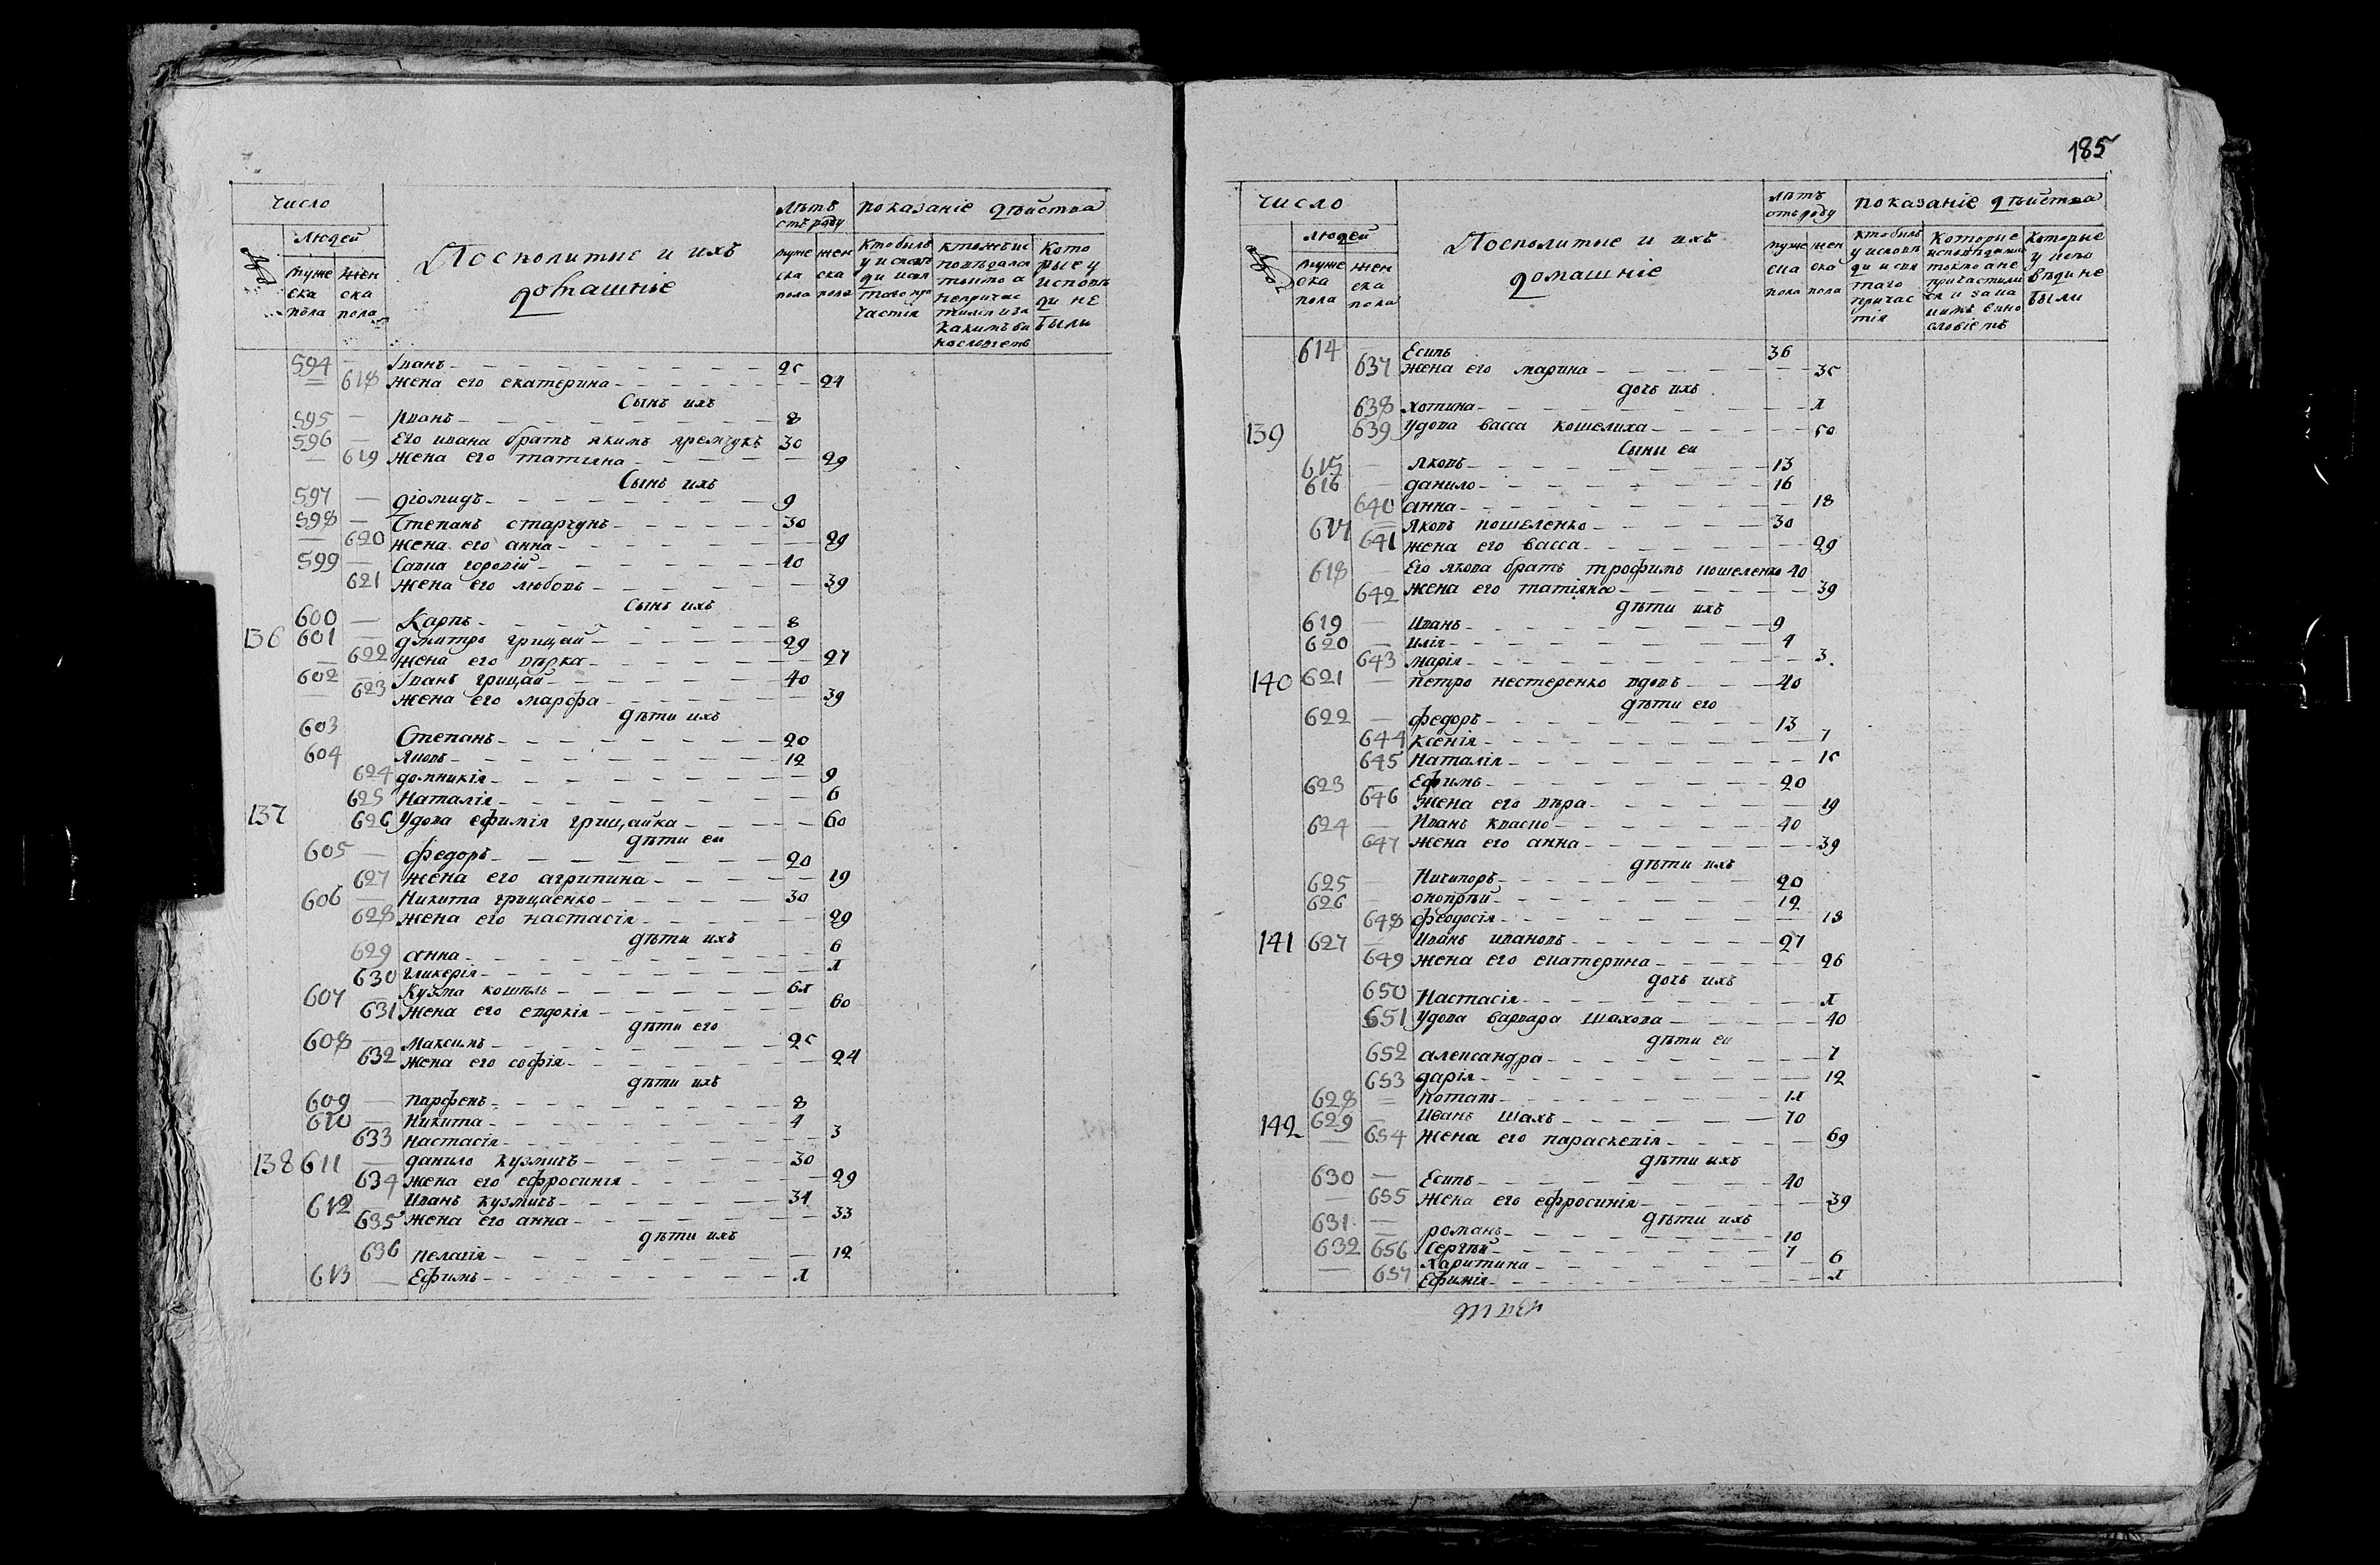 число
людей
муже ска пола
жен ска пола
Посполитые и ихъ домашніе
лѣтъ отъ роду
муже ска пола
жен ска пола
показаніе дѣйства
Кто былъ у исповѣди и святаго причастія
Которые у исповѣди не были
594 — Іванъ 25
— 618 жена его екатерина 24
Сынъ ихъ
595 — Иванъ 8
596 — Его ивана братъ якимъ яремчукъ 30
— 619 жена его татіяна 29
Сынъ ихъ
597 — діомидъ 9
598 — Степанъ старчунъ 30
— 620 жена его анна 29
599 — Савва горовій 40
621 жена его любовь 39
сынъ ихъ
600 — Карпъ 8
136 601 — дмитро грицай 29
— 622 жена его вѣрка 27
602 — Іванъ грицай 40
— 623 жена его марфа 39
дѣти ихъ
603 Степанъ 20
604 Яковъ 12
624 домникія 9
625 Наталія 6
137 626 Удова ефимія грицайка 60
дѣти еи
605 — федоръ 20
627 жена его агрипина 19
606 — Никита грицаенко 30
628 жена его настасія 29
дѣти ихъ
629 анна 6
630 гликерія 1
607 Кузма кошѣль 61
631 жена его евдокія 60
дѣти его
608 Максимъ 25
632 жена его софія 24
дѣти ихъ
609 — парфенъ 8
610 — Никита 4
633 настасія 3
138 611 — данило кузмичъ 30
634 жена его ефросинія 29
612 Иванъ кузмичъ 34
635 жена его анна 33
дѣти ихъ
636 пелагія 12
613 — Ефимъ 1
185
число
людей
муже ска пола
жен ска пола
Посполитые и ихъ домашніе
лѣтъ отъ роду
муже ска пола
жен ска пола
показаніе дѣйства
Кто былъ у исповѣди и святаго причастія
Которые исповѣдались токмо а не причастились и за каимъ винословіемъ
Которые у исповѣди не были
614 — Есипъ 36
637 жена его марина 35
дочь ихъ
638 хотина 1
139 639 Удова васса кошелиха 50
Сыни еи
615 — яковъ 13
616 — данило 16
640 анна 18
617 = Яковъ кошеленко 30
641 жена его васса 29
618 — Его якова братъ трофимъ кошеленко 40
642 жена его татіяна 39
дѣти ихъ
619 — Иванъ 9
620 — илія 4
643 марія 3
140 621 — петро нестеренко вдовъ 40
дѣти его
622 — федоръ 13
644 ксенія 7
645 Наталія 15
623 — Ефимъ 20
646 жена его вѣра 19
624 — Иванъ квасно 40
647 жена его анна 39
дѣти ихъ
625 — Ничипоръ 20
626 — онопрѣй 12
648 феодосія 13
141 627 — Иванъ ивановъ 27
649 жена его екатерина 26
дочь ихъ
650 Настасія 1
651 Удова варвара Шахова 40
дѣти еи
652 александра 7
653 дарія 12
628 = Потапъ 11
142 629 — Иванъ шахъ 70
— 654 жена его параскевія 69
дѣти ихъ
630 — Есипъ 40
— 655 жена его ефросинія 39
дѣти ихъ
631 — романъ 10
632 Сергѣй 7
656 Харитина 6
— 657 Ефимія 1